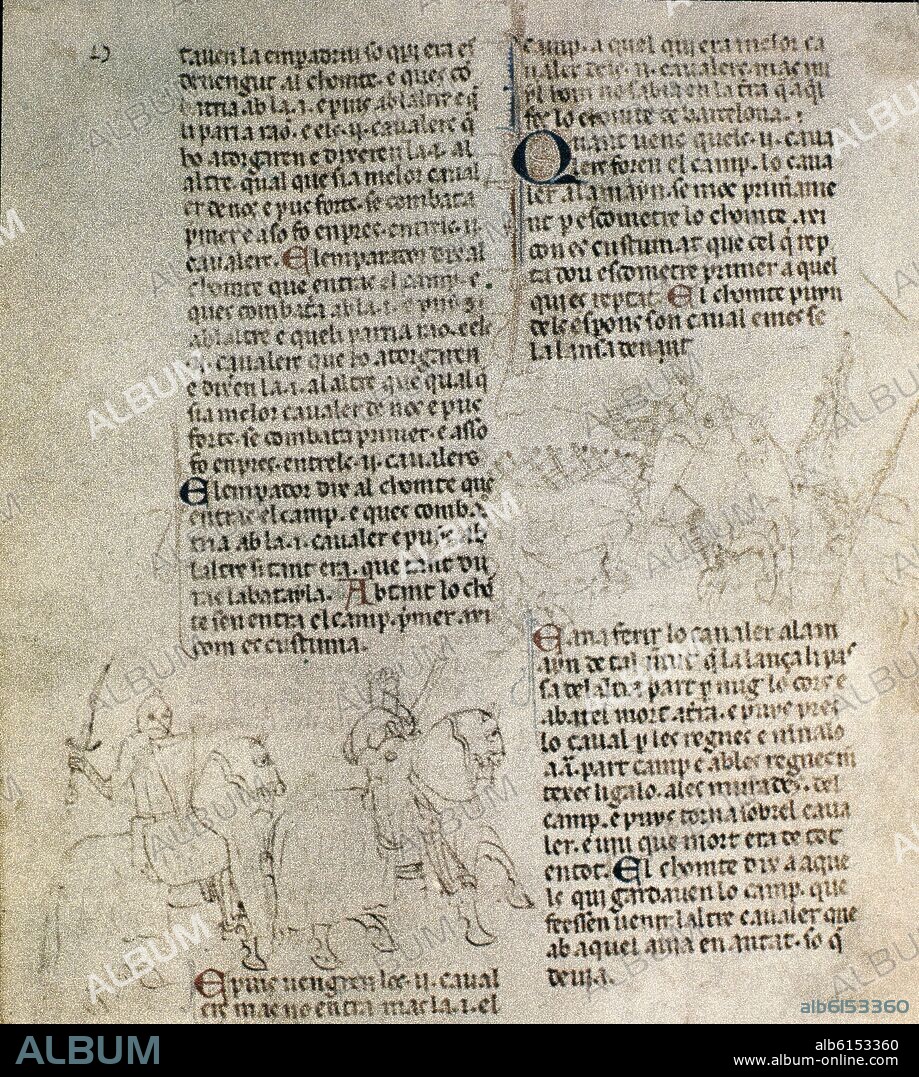 cauen la emparadriu so qui era es
deuengut al chomte. e ques co
batria ab la .i. e puis ab laltre e q̄
li paria rao. e ele .ii. caualers q̄
ho atorgaren e dixeren la .i. al
altre. qual que sia melor caual
er de nos e pus forts. se combata
pmer e aso fo enpres entre le .ii.
caualers. Elemparador dix al
chomte que entras el camp. e
ques combatra ab la .i. e puis
ab laltre e quels paria rao. e ele
.ii. caualers que ho atorgaren
e dixen la .i. al altre que qual q̄
sia melor caualer de nos e pus
forts. se combata primer. e asso
fo enpres. entrels .ii. caualers
Elemperador dix al chomte que
entras el camp. e ques comba
tria ab la .i. caualer e puis ab
laltre si tant era. que tant du
ras la batayla. Abtant lo cho
te sen entra el camp. pmer. axi
com es custuma.
E puis uengren les .ii. caual
ers mas no entra mas la .i. el
camp. a quel qui era melor ca
ualer dels .ii. caualers. mas nu
yl hom no sabia en la tr̄a q̄ aq̄l
fos lo chomte de barcelona.
Quant uenc quels .ii. caua
lers foren el camp. lo caua
ler alamayn. se moc primame
nt p escometre lo chomte. axi
con es custumat que cel q̄ rep
ta deu escometre primer a quel
qui es reptat. El chomte puyn
dels esperons son caual e mes se
la lansa denant
E ana ferir lo caualer alam
ayn de tal uirtut q̄ la lança li pas
sa del altra part p mig lo cors e
abatel mort a tr̄a. e puys pres
lo caual p les regnes e
a .i. part camp e ab les regnes
ligalo. a les murades. del
camp. e puys torna sobrel caua
ler. e uiu que mort era de tot
en tot. El chomte dix a aque
ls qui gardauen lo camp. que
fessen uenir laltre caualer que
ab aquel auia en antat. so q̄
deuia.
ALBUM
alb6153360
ALBUM
alb6153360
www.album-online.com